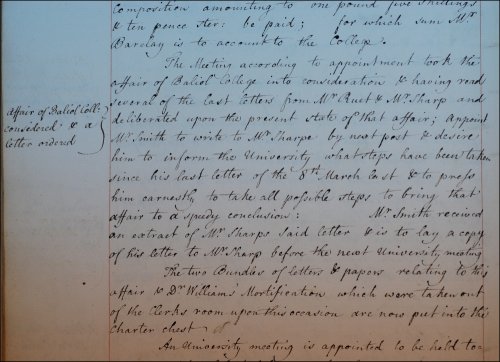 Composition amounting to one pound five shillings
& ten pence ster: be paid; for which sum Mr
Barclay is to account to the College.
The Meeting according to appointment took the
affair of Baliol College into consideration & having read
several of the last letters from Mr Ruet & Mr Sharp and
deliberated upon the present state of that affair; Appoint
Mr Smith to write to Mr Sharpe by next post & desire
him to inform the University what steps have been taken
since his last letter of the 8th March last & to press
him earnestly to take all possible steps to bring that
affair to a speedy conclusion: Mr Smith received
an extract of Mr Sharps said letter & is to lay a copy
of his letter to Mr Sharp before the next University meeting
The two Bundles of letters & papers relating to this
affair & Dr Williams' Mortification which were taken out
of the Clerks room upon this occasion are now put into the
Charter chest
An University meeting is appointed to be held to-
Affair of Baliol Coll:
considered & a
letter ordered